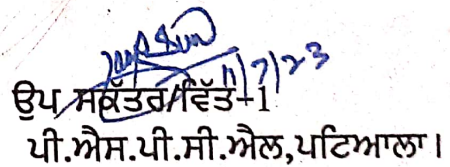 11/7/23
ਉਪ ਸਕੱਤਰ/ਵਿੱਤ-1
ਪੀ.ਐਸ.ਪੀ.ਸੀ.ਐਲ,ਪਟਿਆਲਾ।